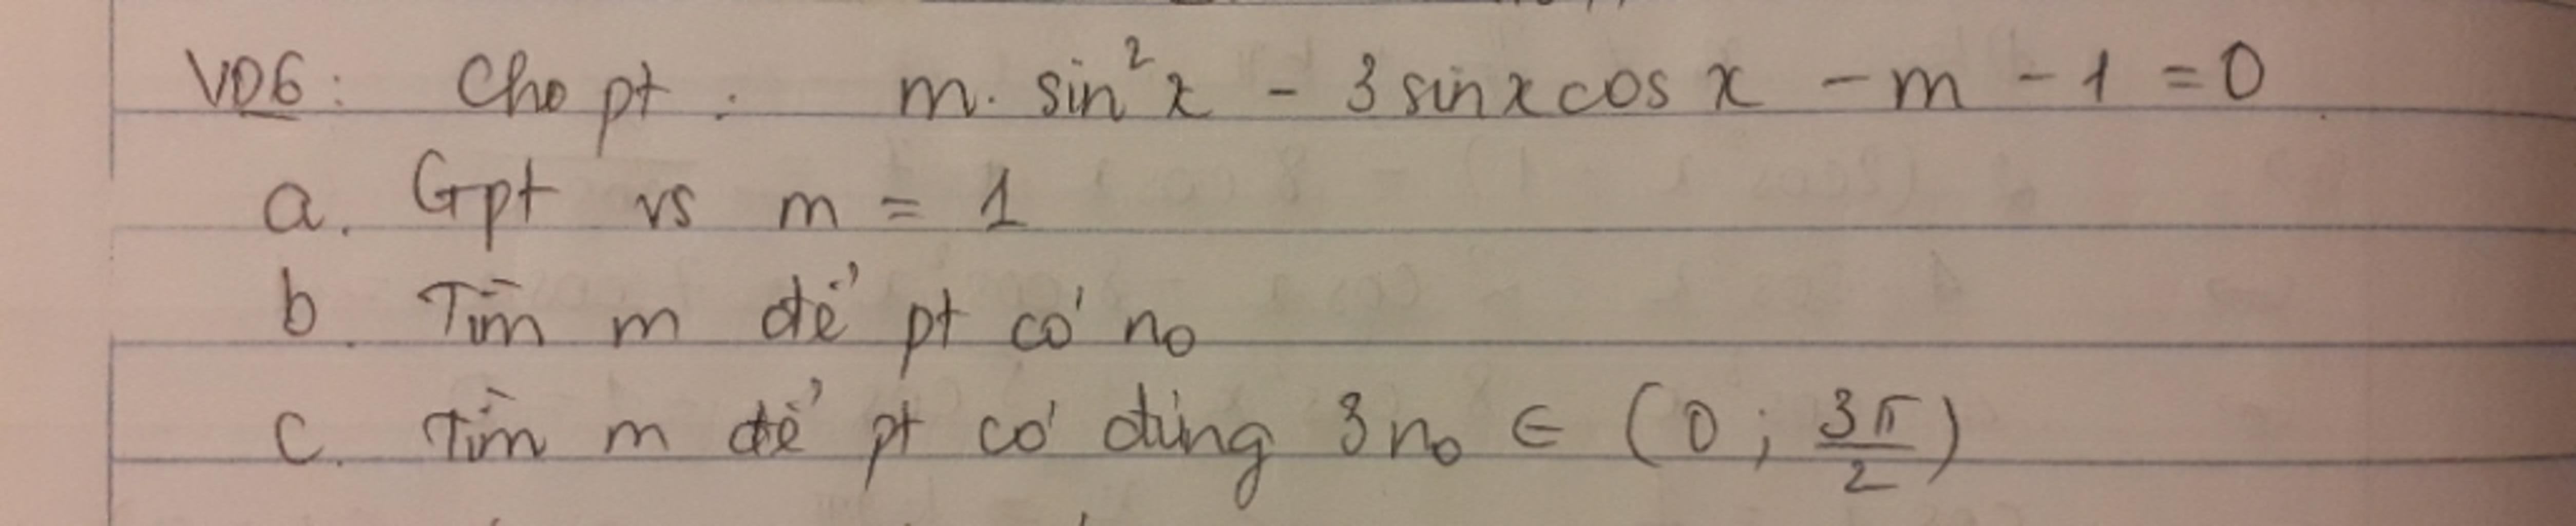 VD6: Cho pt: m. sin²x - 3 sinx cos x - m - 1 = 0
a. Gpt vs m = 1
b. Tìm m để pt có no
c. Tìm m để pt có đúng 3 no ∈ (0; 3π/2)